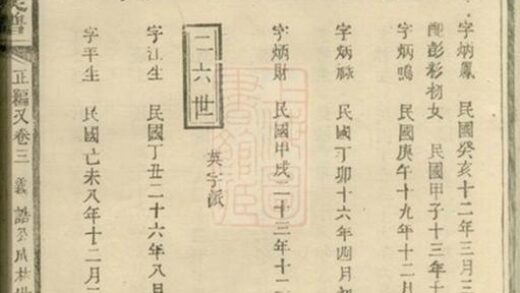 字炳鳳 民國癸亥十二年三月三
配彭彩初女 民國甲子十三年
字炳鳴 民國庚午十九年十二月
字炳祿 民國丁卯十六年四月初
字炳財 民國甲戌二十三年十二
二六世
英字派
字江生 民國丁丑二十六年八月
字平生 民國己未八年十二月二
正編又卷三 義